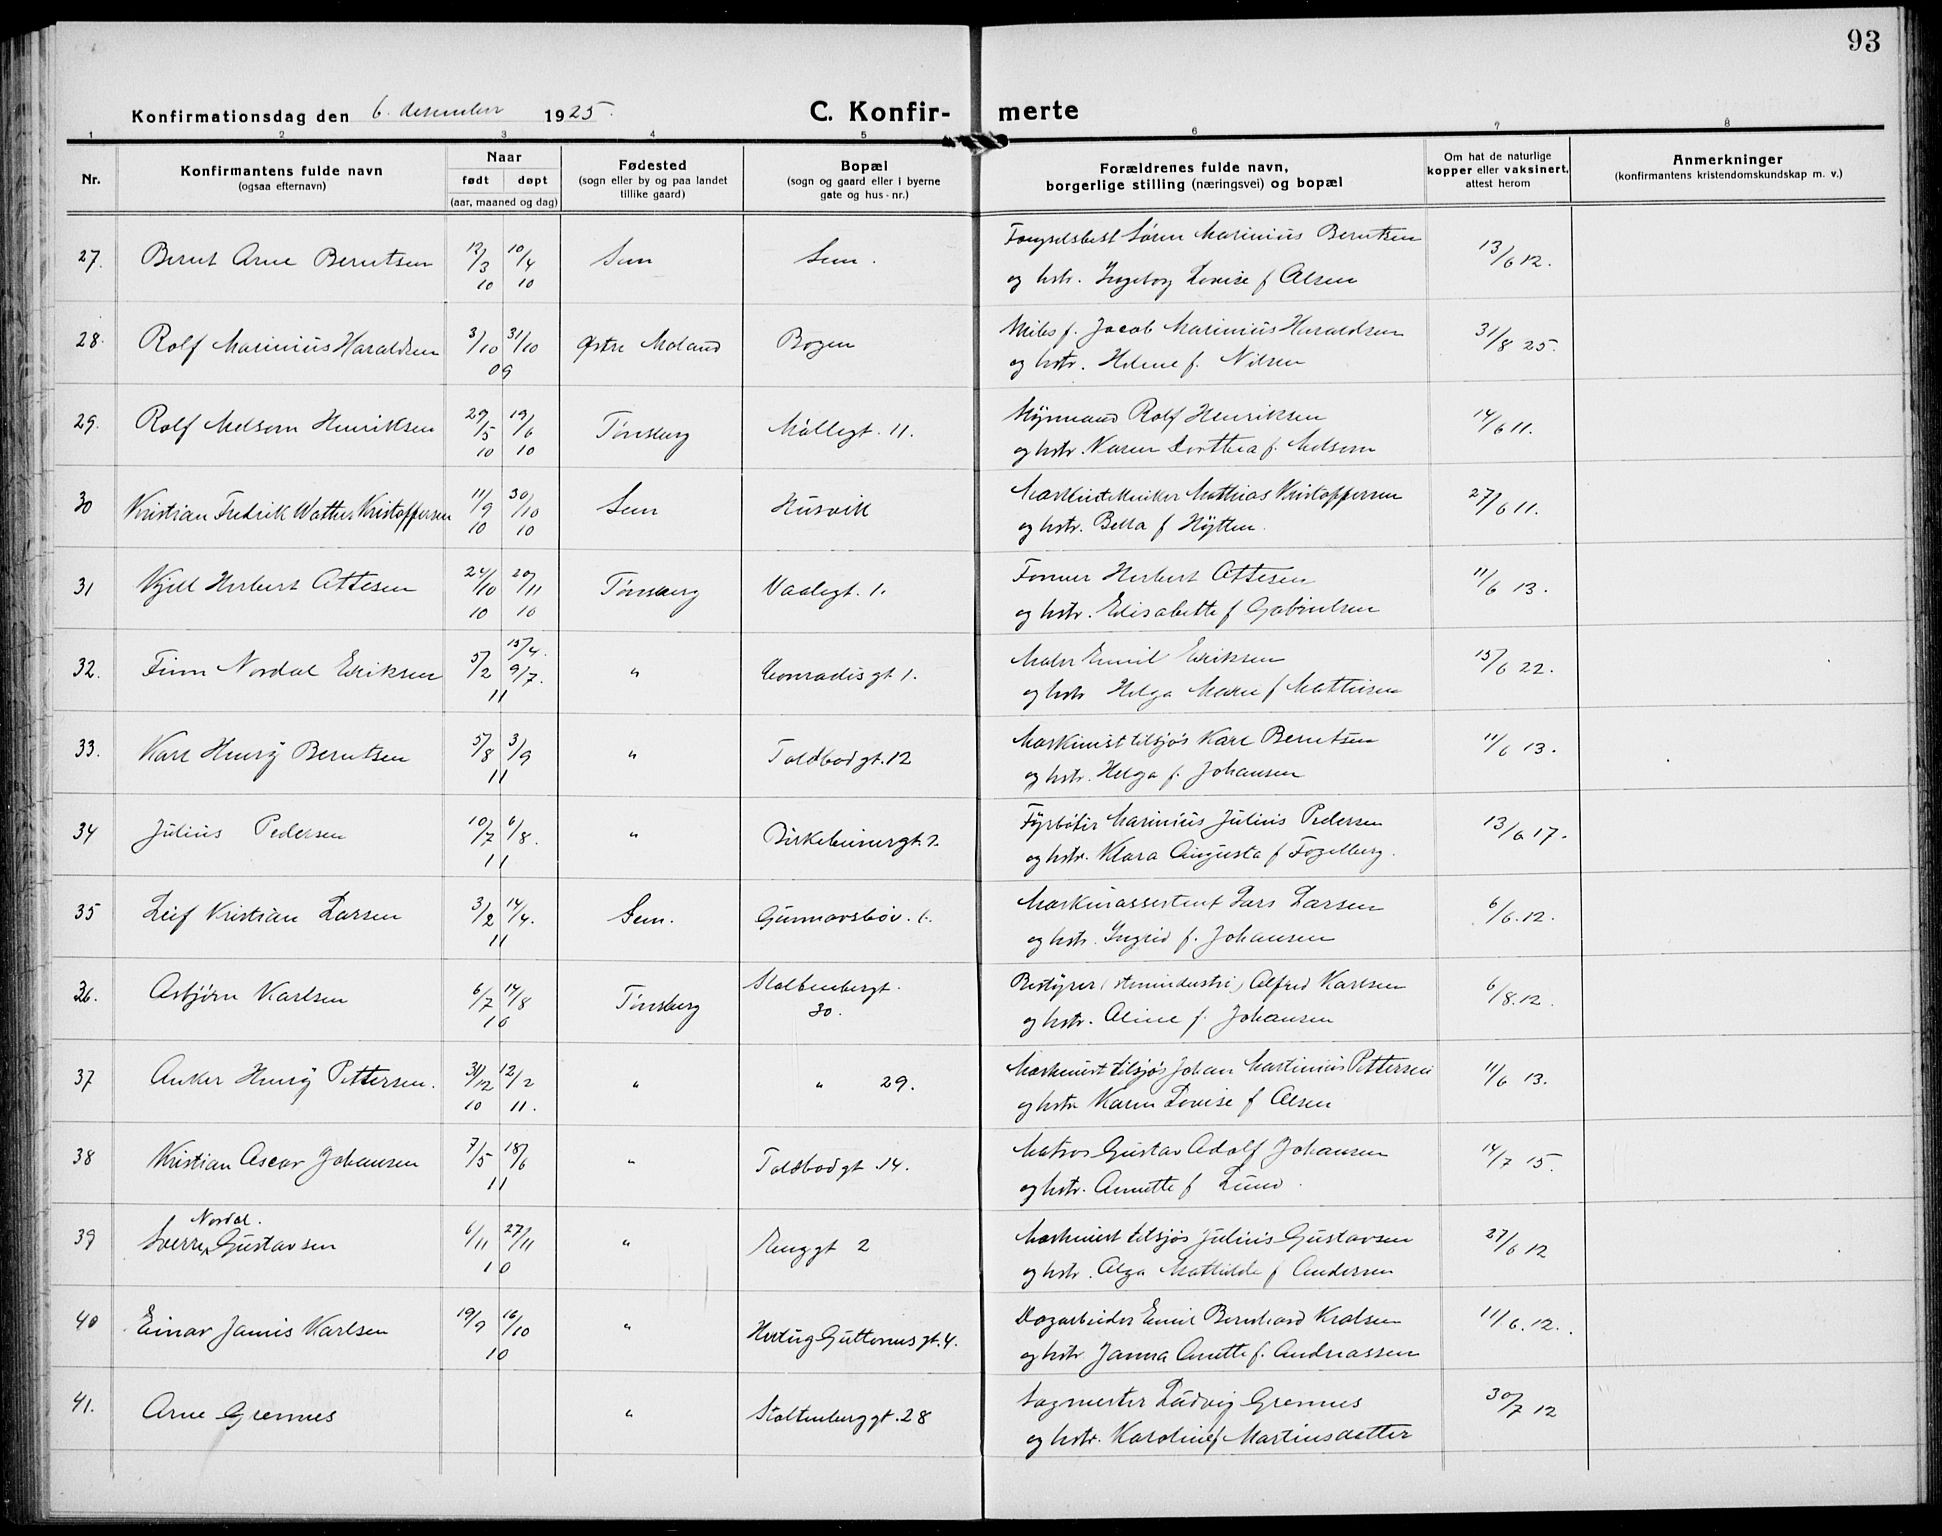 93
Konfirmationsdag den 6. desember 1925.
C. Konfirmerte
1 2 3 4 5 6 7 8
Nr.
Konfirmantens fulde navn
(ogsaa efternavn)
Naar
født døpt
(aar, maaned og dag)
Fødested
(sogn eller by og paa landet
tillike gaard)
Bopæl
(sogn og gaard eller i byerne
gate og hus-nr.)
Forældrenes fulde navn,
borgerlige stilling (næringsvei) og bopæl
Om hat de naturlige
kopper eller vaksinert,
attest herom
Anmerkninger
(konfirmantens kristendomskundskap m. v.)
27. Bernt Arne Berntsen 12/3 10 10/4 10 Sem Sem. Fængselsbest Søren Marinius Berntsen 13/6 12.
og hstr. Ingeborg Lovise f Olsen
28. Rolf Marinius Haraldsen 3/10 31/10 09 Østre Moland Bogen Jacob Marinius Haraldsen 31/8 25.
og hstr. Helene f. Nilsen
29. Rolf Melsom Henriksen 29/5 10 19/6 10 Tønsberg Møllegt. 11. Rolf Henriksen 14/6 11.
og hstr. Karen Dorthea f. Melsom
30 Kristian Fredrik Walther Kristoffersen 11/9 10 30/10 10 Sem Husvik Mathias Kristoffersen 27/6 11.
og hstr. Berta f Hytten.
31 Kjell Herbert Ottesen 24/10 10 20/11 10 Tønsberg Vaalegt. 1. Former Herbert Ottesen 11/6 13.
og hstr. Elisabeth f Gabrielsen
32. Finn Nordal Eriksen 5/2 15/4. 9/7. 11 " Conradisgt 1. Maler Emil Eriksen 15/6 22.
og hstr Helga Marie f Mathisen
33. Karl Henry Berntsen 5/8 3/9 11 " Toldbodgt. 12 Maskinist tilsjøs Karl Berntsen 11/6 13.
og hstr. Helga f. Johansen
34 Julius Pedersen 10/7 6/8. 11 " Birkebeinergt. 2. Fyrbøter Marinius Julius Pedersen 13/6 17.
og hstr. Klara Augusta f Fogelberg.
35 Leif Kristian Larsen 3/2 14/4. 11 Sem. Gunnarsbøv. 6. Maskinassistent Lars Larsen 6/6. 12.
og hstr. Ingrid f. Johansen
36. Asbjørn Karlsen 6/7 14/8 10 Tønsberg Stoltenbergt. Bestyrer (stenindustri) Alfred Karlsen 6/8. 12.
30. og hstr. Aline f. Johansen
37 Anker Henry Pettersen. 31/12 10 12/2 11. " " 29. Maskinist tilsjøs Johan Martinius Pettersen 11/6 13.
og hstr Karen Lovise f Olsen
38 Kristian Oscar Johansen 7/5 18/6 11 " Toldbodgt. 14. Matros Gustav Adolf Johansen 14/7 15.
og hstr. Annette f Lund.
39 Sverre Nordal. Gustavsen 6/11 27/11 10 " Enggt 2 Maskinist tilsjøs Julius Gustavsen 27/6 12
og hstr. Olga Mathilde f Andersen
40 Einar Jamis Karlsen 19/9 16/10 10 " Hertug Guttormsgt. 4. Dagarbeider Emil Bernhard Kralsen 11/6. 12.
og hstr Janna Anette f. Andreassen
41. Arne Grennes " Stoltenberggt. 28 Sagmester Ludvig Grennes 30/7 12
og hstr. Karoline f Martinsdatter